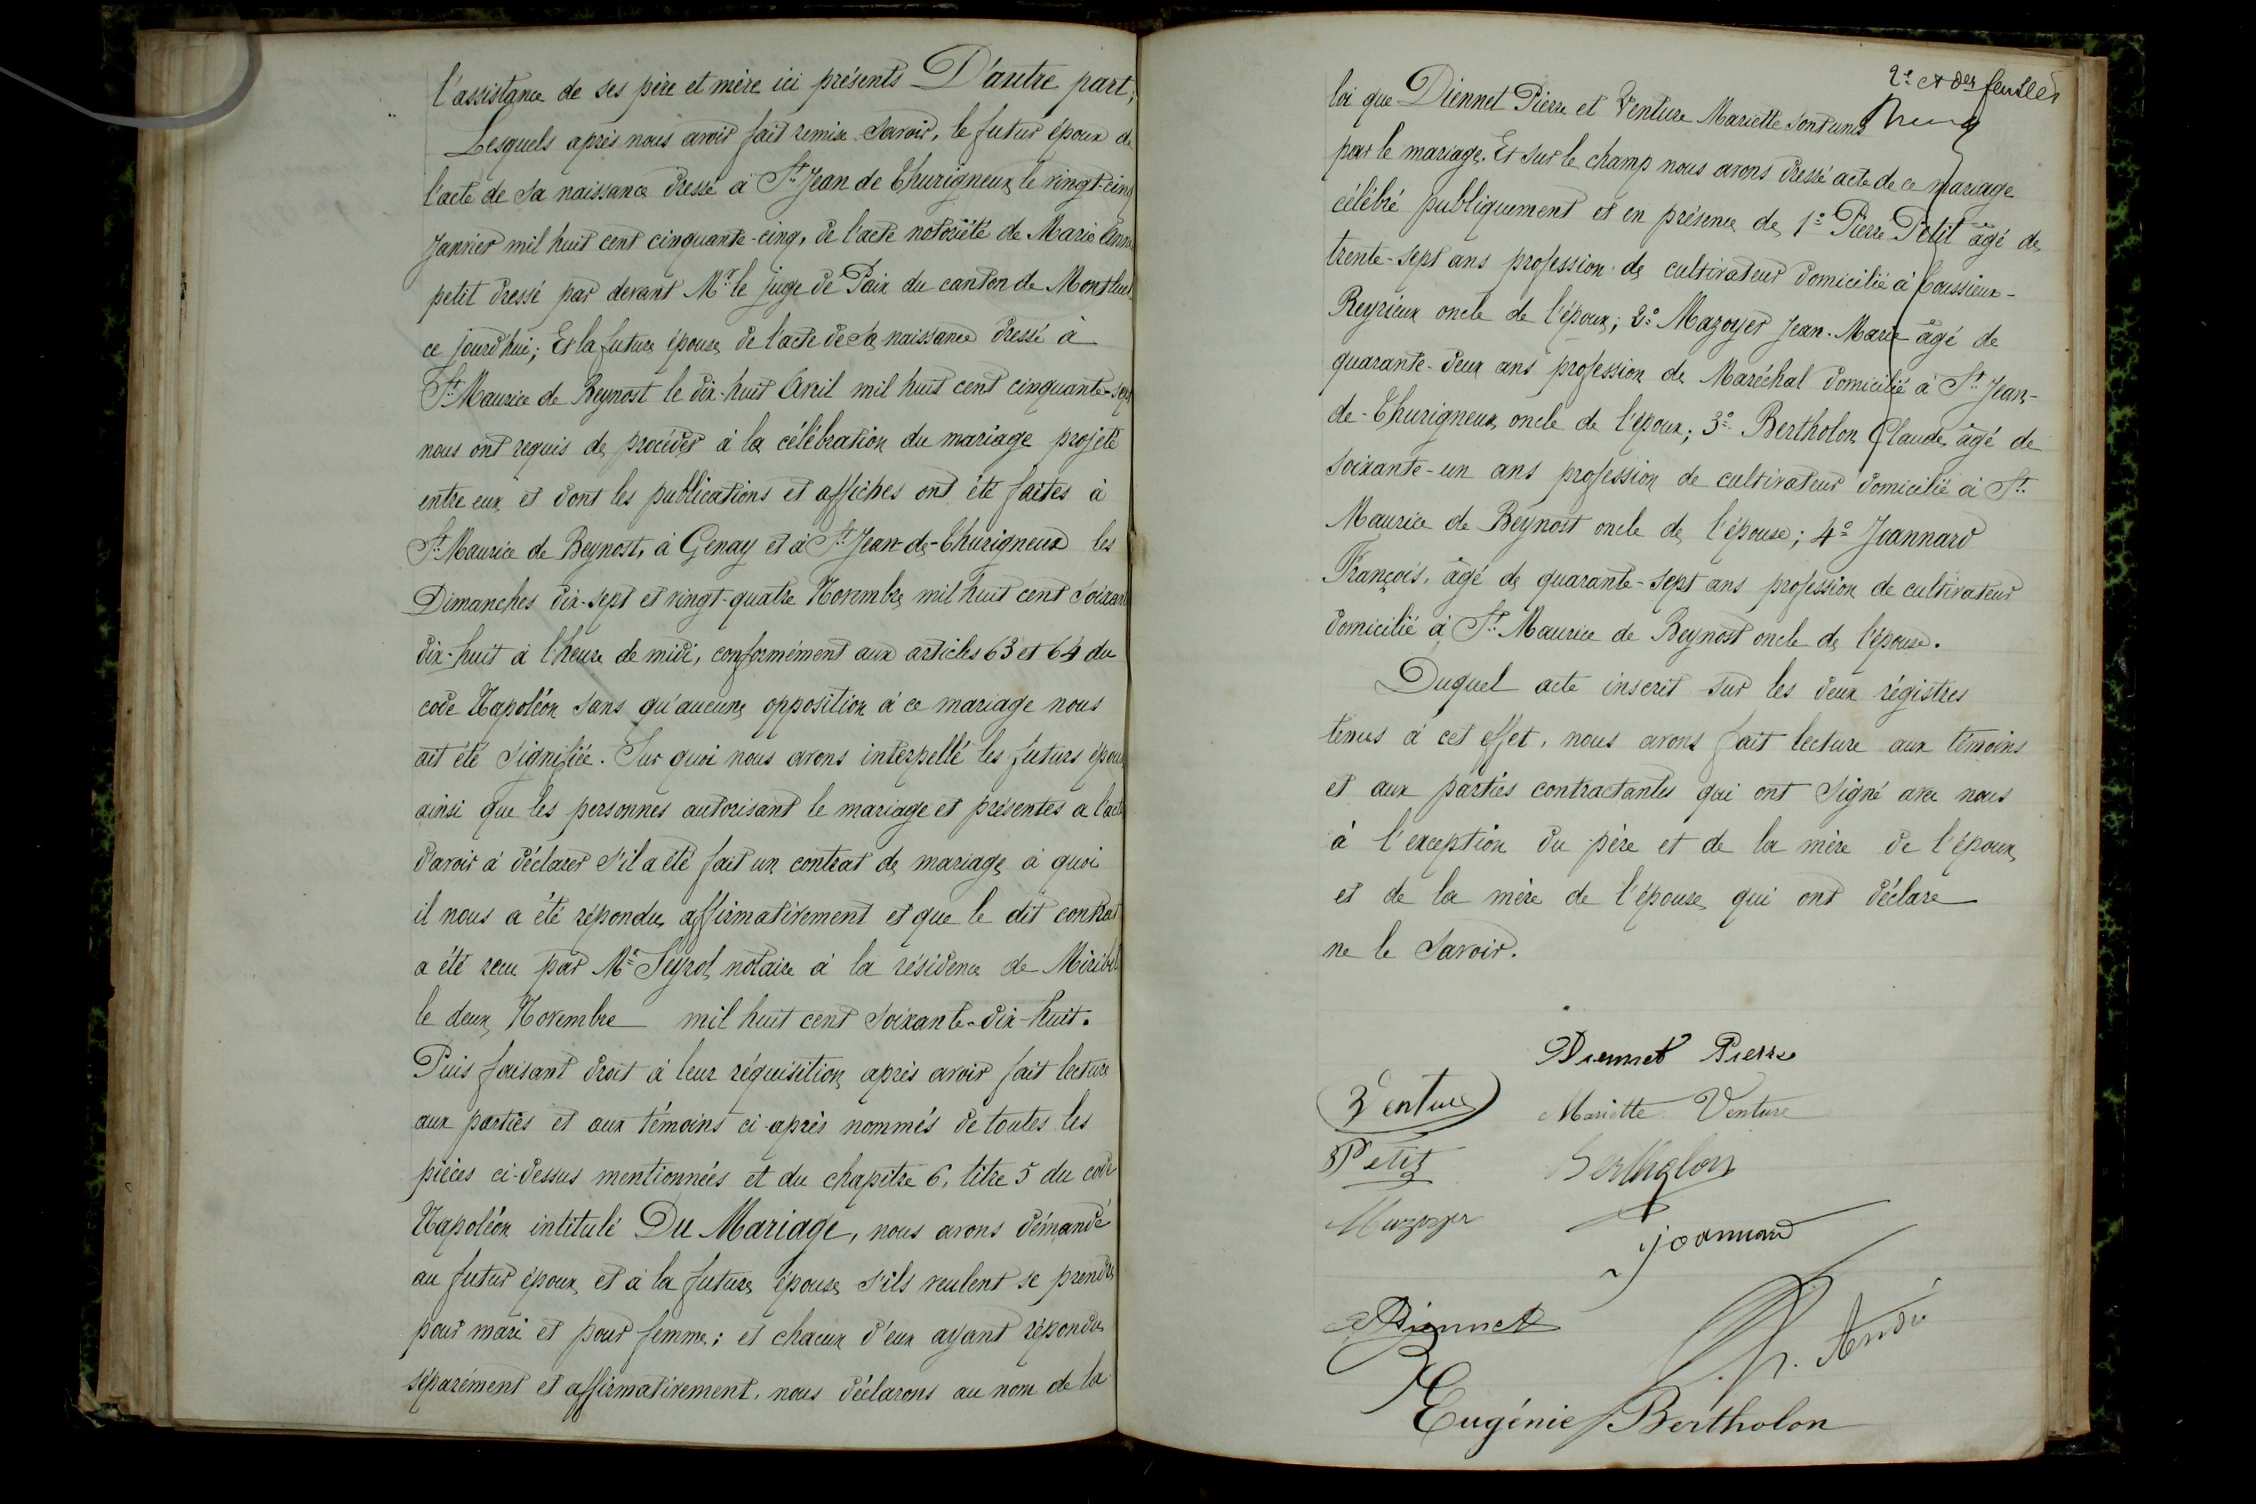 l'assistance de ses père et mère ici présents D'autre part;
Lesquels après nous avoir fait remise Savoir, le futur époux de
l'acte de sa naissance dressé à St. Jean de Thurigneux le vingt-cinq
Janvier mil huit cent cinquante-cinq, de l'acte notoriété de Marie Anne
petit dressé par devant Mr. le juge de Paix du canton de Montluel
ce jourd'hui; Et la future épouse de l'acte de sa naissance dressé à
St. Maurice de Beynost le dix-huit Avril mil huit cent cinquante-sept
nous ont requis de procéder à la célébration du mariage projeté
entre eux et dont les publications et affiches ont été faites à
St. Maurice de Beynost, à Genay et à St. Jean-de-Thurigneux les
Dimanches dix-sept et vingt-quatre Novembre mil huit cent Soixante
dix-huit à l'heure de midi, conformément aux articles 63 et 64 du
code Napoléon sans qu'aucune opposition à ce mariage nous
ait été signifiée. Sur quoi nous avons interpellé les futurs époux
ainsi que les personnes autorisant le mariage et présentes à l'acte
d'avoir à déclarer s'il a été fait un contrat de mariage à quoi
il nous a été répondu affirmativement et que le dit contrat
a été recu par Me. Seyrol notaire à la résidence de Miribel
le deux Novembre mil huit cent Soixante-dix-huit.
Puis faisant droit à leur réquisition après avoir fait lecture
aux parties et aux témoins ci-après nommés de toutes les
pièces ci-dessus mentionnées et du chapitre 6, titre 5 du code
Napoléon intitulé Du Mariage, nous avons démandé
au futur époux et à la future épouse s'ils veulent se prendre
pour mari et pour femme; et chacun d'eux ayant répondu
séparément et affirmativement, nous déclarons au nom de la
2e et der feuillet
loi que Diennet Pierre et Venture Mariette sont unis
par le mariage. Et sur le champ nous avons dressé acte de ce mariage
célébré publiquement et en présence de 1° Pierre Petit âgé de
trente-sept ans profession de cultivateur domicilié à Toussieux-
Reyrieux oncle de l'époux; 2° Mazoyer Jean-Marie âgé de
quarante-deux ans profession de Maréchal domicilié à St. Jean-
de-Thurigneux oncle de l'époux; 3° Bertholon Claude âgé de
soixante-un ans profession de cultivateur domicilié à St.
Maurice de Beynost oncle de l'épouse; 4° Joannard
François, âgé de quarante-sept ans profession de cultivateur
domicilié à St. Maurice de Beynost oncle de l'épouse.
Duquel acte inscrit sur les deux régistres
tenus à cet effet, nous avons fait lecture aux témoins
et aux parties contractantes qui ont signé avec nous
à l'exception du père et de la mère de l'époux
et de la mère de l'épouse qui ont déclare
ne le savoir.
Diennet Pierre
Venture Mariette Venture
Petit Bertholon
Mazoyer
Joannard
Diennet
André
Eugénie Bertholon